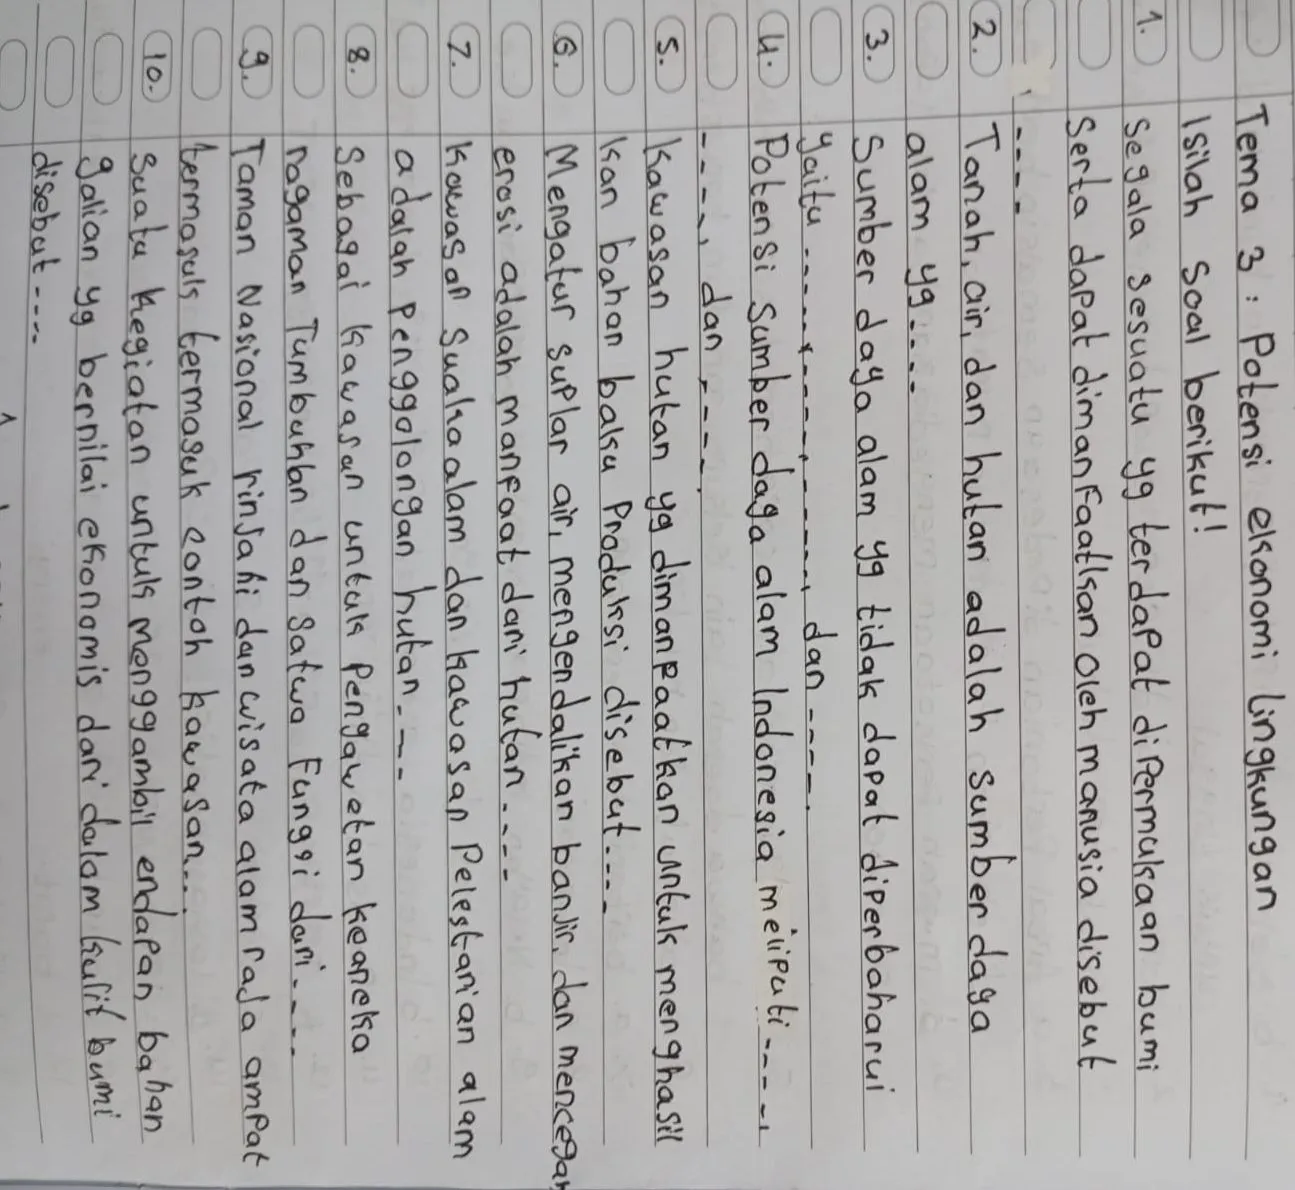 Tema 3 : Potensi ekonomi lingkungan
Isilah soal berikut!
1. Segala sesuatu yg terdapat dipermukaan bumi
Serta dapat dimanfaatkan oleh manusia disebut
----.
2. Tanah, air, dan hutan adalah sumber daya
alam yg....
3. Sumber daya alam yg tidak dapat diperbaharui
yaitu -----, -----, -----, dan ----.
4. Potensi sumber daya alam Indonesia meliputi ----,
----, dan ----.
5. Kawasan hutan yg dimanpaatkan untuk menghasil
kan bahan baku produksi disebut....
6. Mengatur suplar air, mengendalikan banjir, dan mencegah
erosi adalah manfaat dari hutan....
7. Kawasan suaka alam dan kawasan Pelestarian alam
adalah penggolongan hutan....
8. Sebagai kawasan untuk pengawetan keaneka
ragaman Tumbuhan dan satwa Fungsi dari....
9. Taman Nasional rinjani dan wisata alam raja ampat
termasuk termasuk contoh kawasan...
10. Suatu kegiatan untuk menggambil endapan bahan
galian yg bernilai ekonomis dari dalam kulit bumi
disebut....